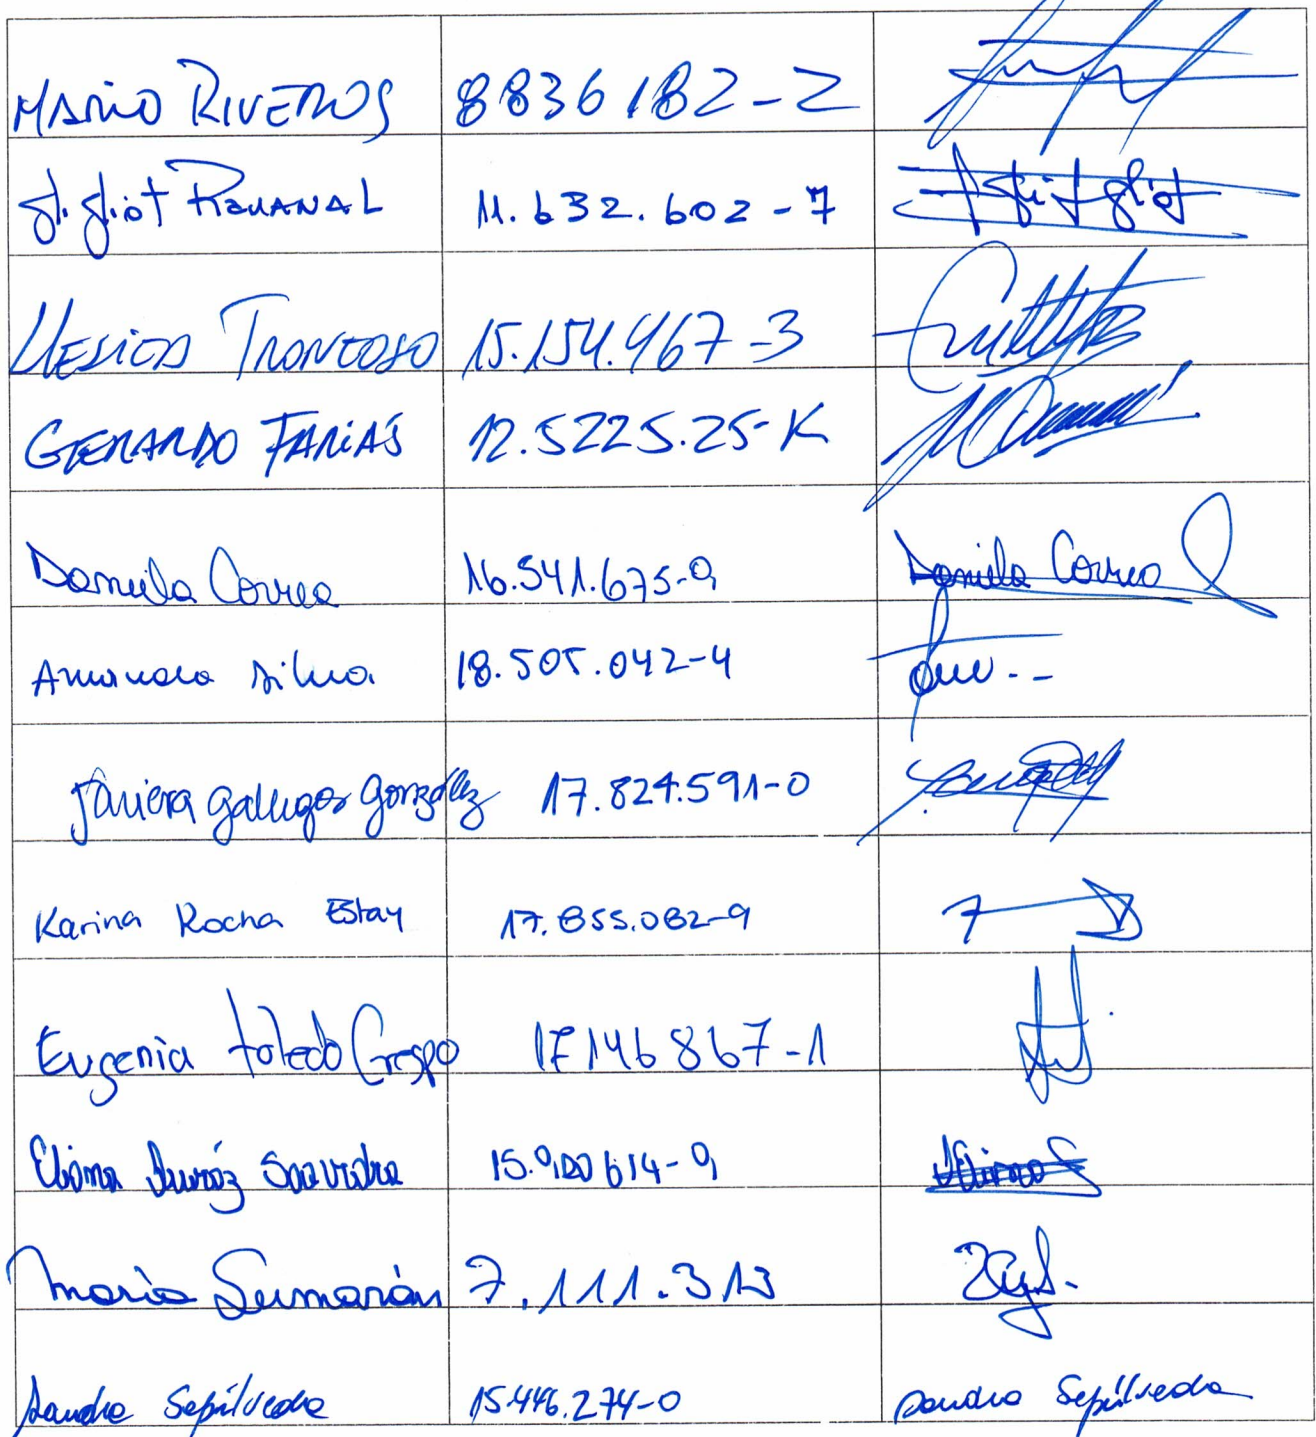 MARIO RIVEROS 8836182-2
Ravanal 11.632.602-7
YESICA TRONCOSO 15.154.467-3
GERARDO FARIAS 12.5225.25-K
Daniela Correa 16.541.675-9 Daniela Correa
Amanda Silva 18.505.042-4
Javiera gallegos gonzález 17.824.591-0
Karina Rocha Estay 17.855.082-9
Eugenia toledo Crespo 17146867-1
Eliana Muñoz Saavedra
Maria Sumarán 7.111.313
Sandra Sepúlveda 15.446.274-0 Sandra Sepúlveda